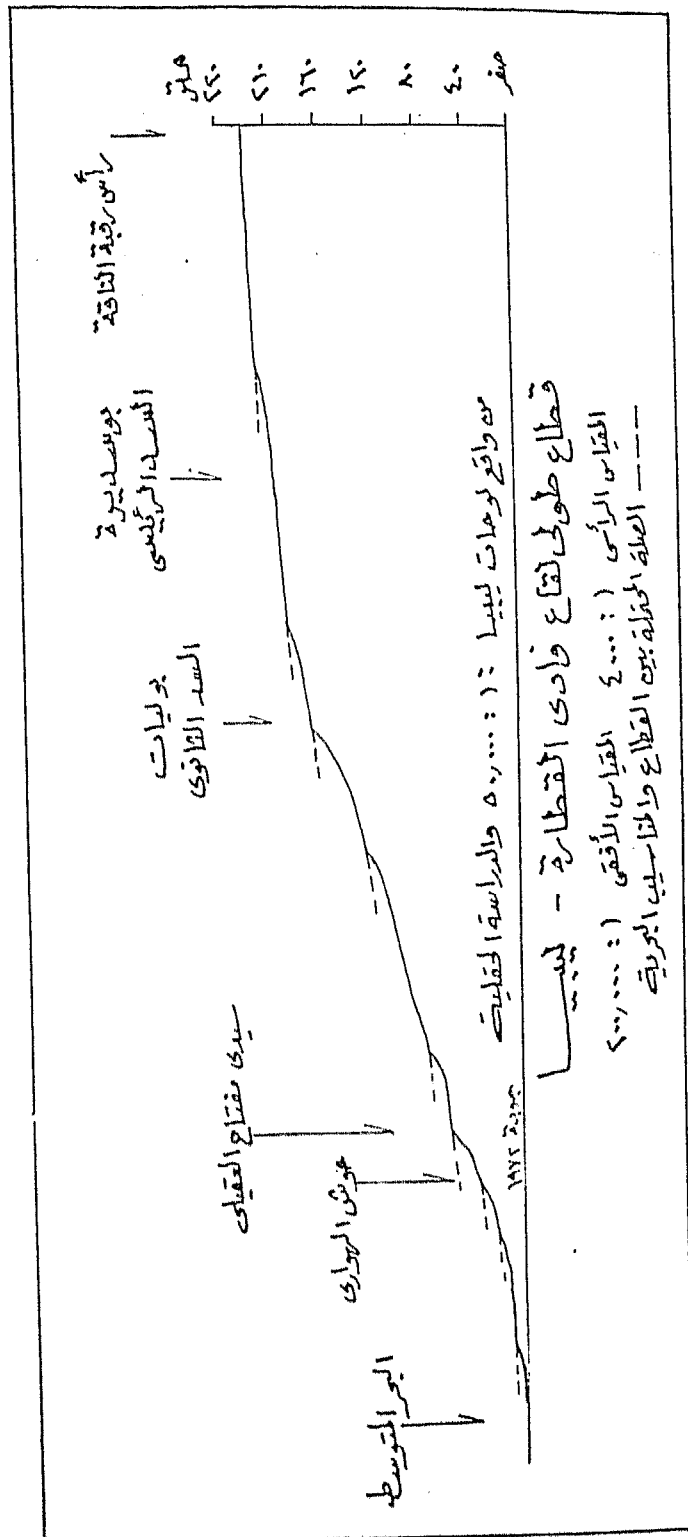 متر
١٦٠
١٢٠
٨٠
٤٠
صفر
رأس رقبة الناقة
بوسديرة
السد الرئيسى
بوليات
السد الثانوى
سيدى مفتاح العقيلى
حوش الهوارى
البحر المتوسط
من واقع لوحات ليبيا ١ : ٥٠,٠٠٠ والدراسة الحقلية
جودة ١٩٧٢
قطاع طولى لقاع وادى القطارة - ليبيا
المقياس الرأسى ١ : ٤٠٠٠ المقياس الأفقى ١ : ٢٠٠,٠٠٠
---- الصلة المحتملة بين القطاع والمناسيب البحرية